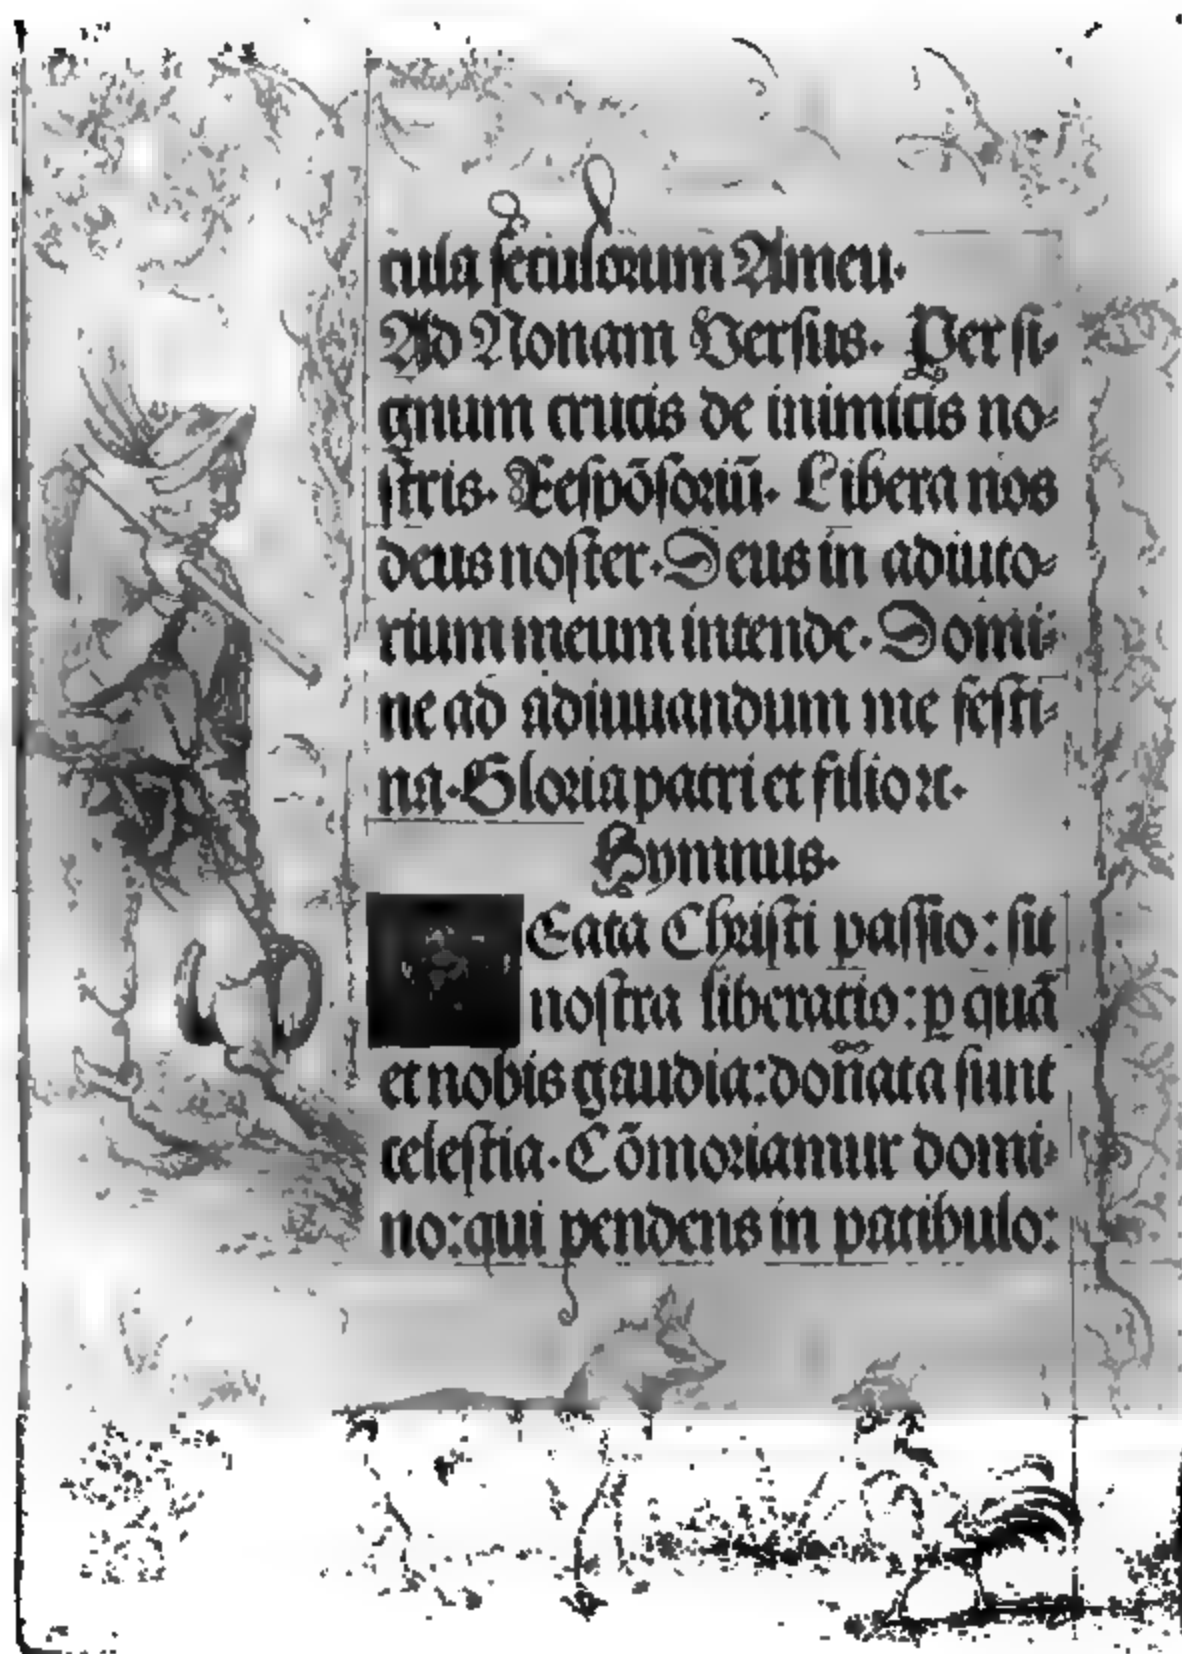 cula seculorum Ameu.
Ad Nonam Versus. Per si-
gnum crucis de inimicis no-
stris. Respōsoriū. Libera nos
deus noster. Deus in adiuto-
rium meum intende. Domi-
ne ad adiuuandum me festi-
na. Gloria patri et filio ꝛc.
Hymnus.
Beata Christi passio: sit
nostra liberatio: ꝑ quā
et nobis gaudia: don̄ata sunt
celestia. Cōmoriamur domi-
no: qui pendens in patibulo: